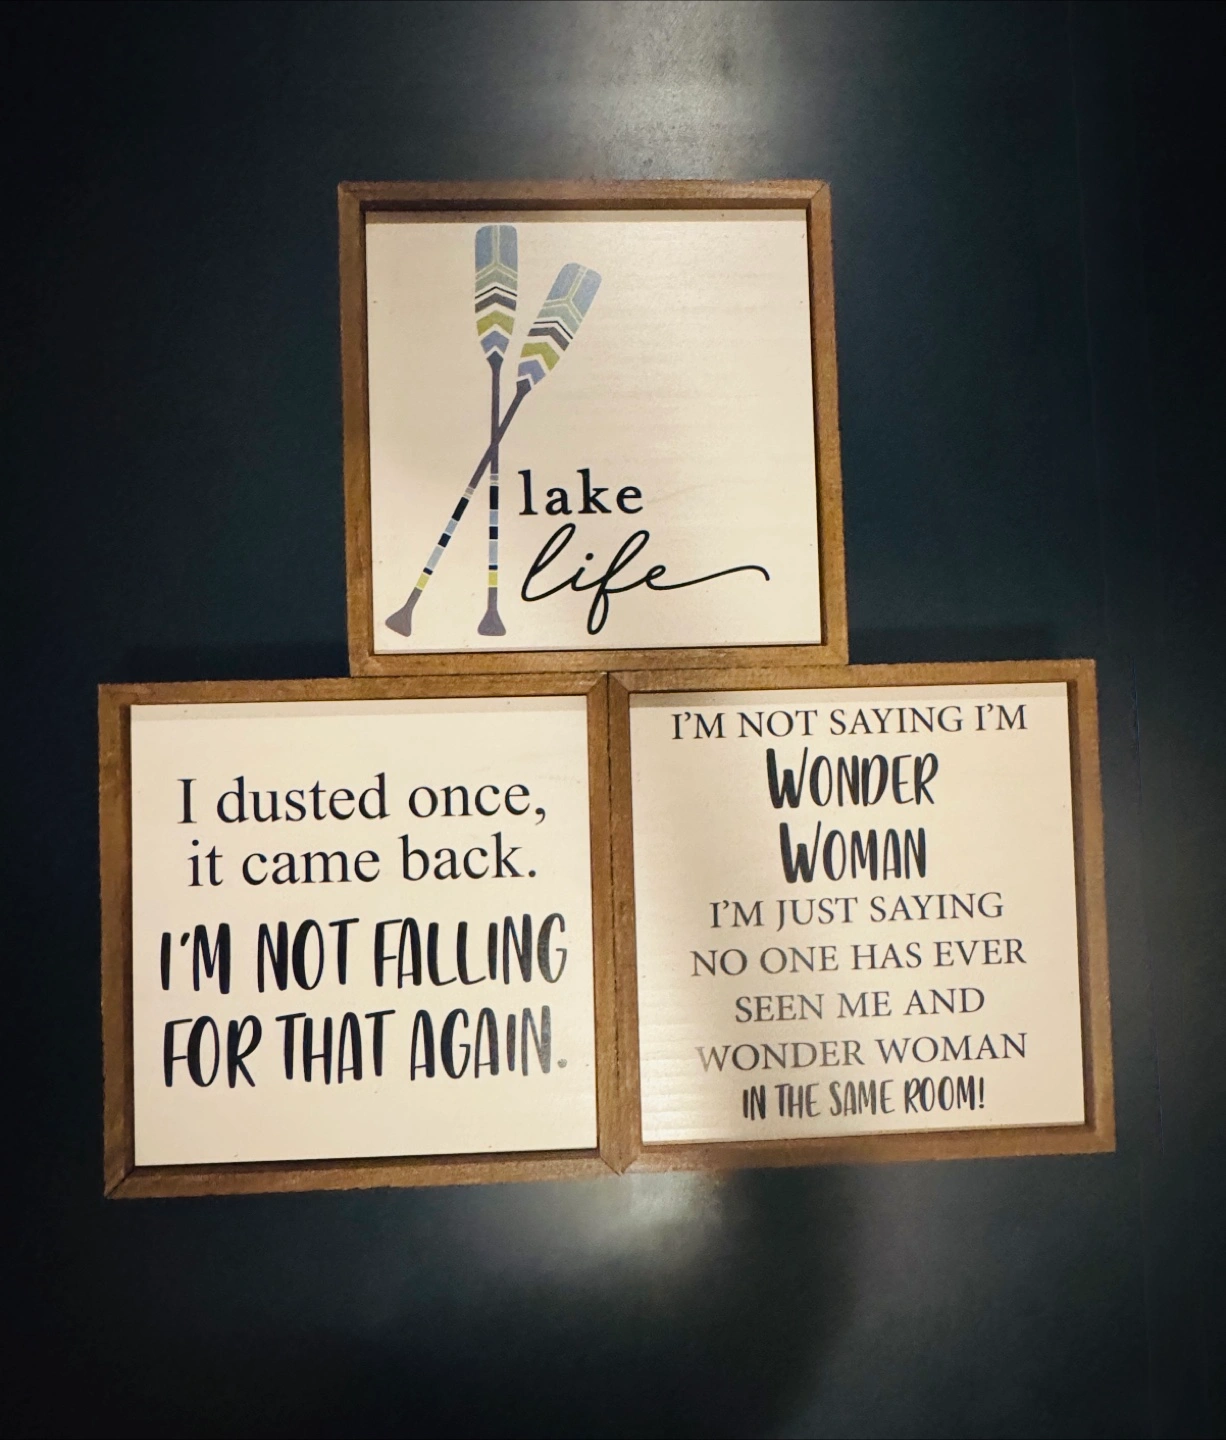 lake
life
I dusted once,
it came back.
I'M NOT FALLING
FOR THAT AGAIN.
I'M NOT SAYING I'M
WONDER
WOMAN
I'M JUST SAYING
NO ONE HAS EVER
SEEN ME AND
WONDER WOMAN
IN THE SAME ROOM!